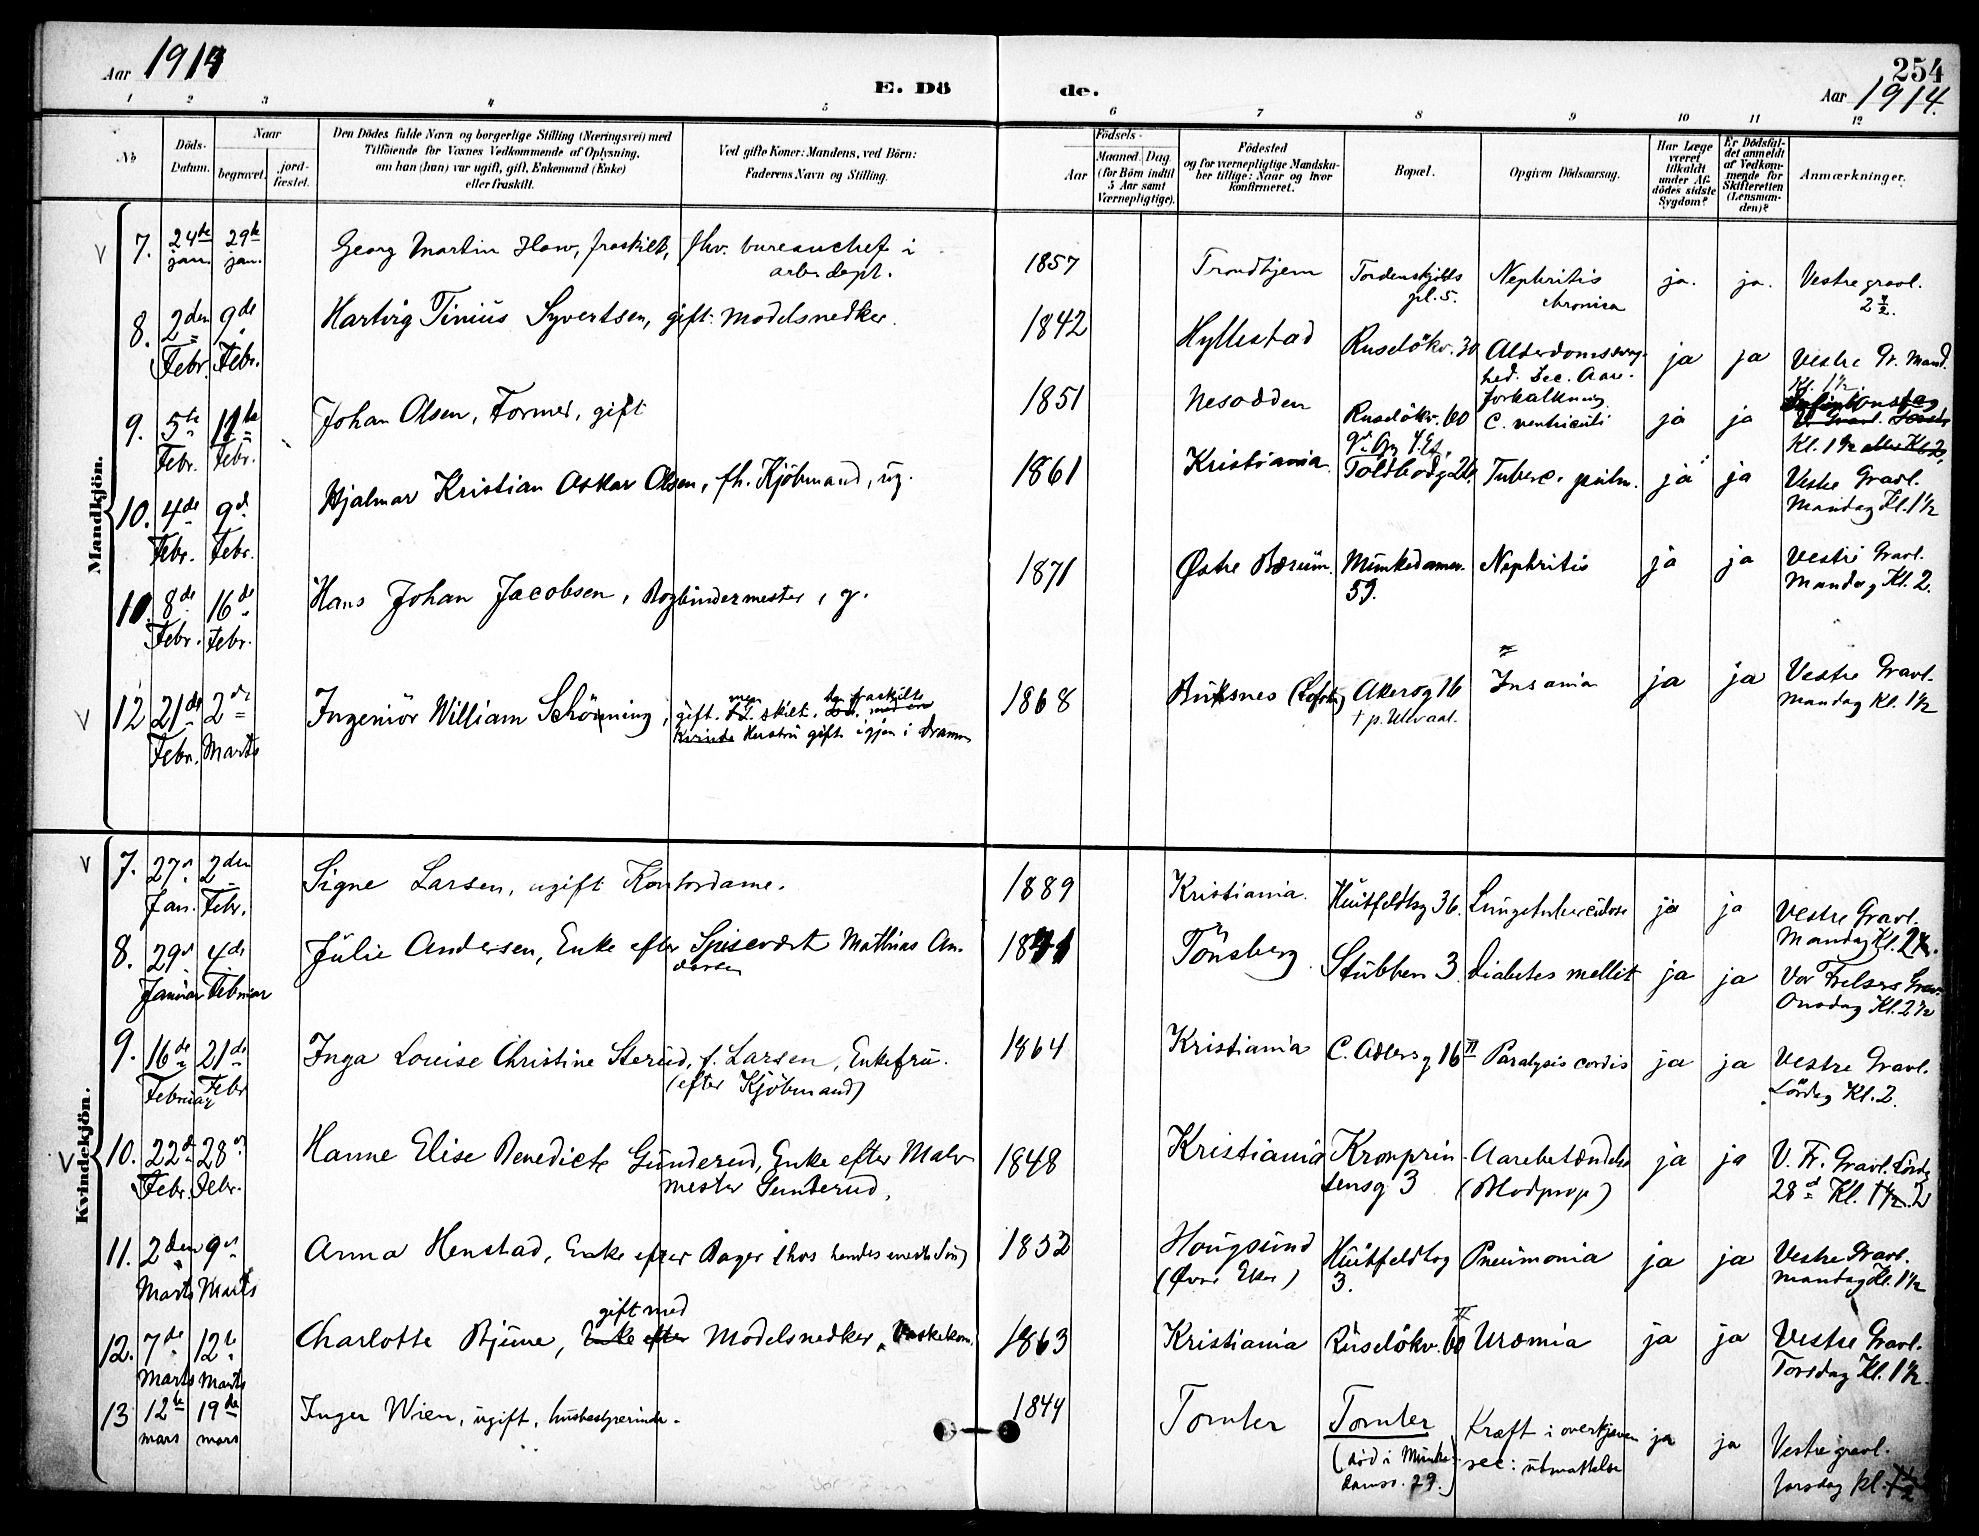 Aar 1914
E. Dö
de.
254
Aar 1914.
1 2 3 4 5 6 7 8 9 10 11 12
No
Döds-Datum.
Naar
begravet.
jord-fæstet.
Den Dödes fulde Navn og borgerlige Stilling (Næringsvei) med
Tilföiende for Voxnes Vedkommende af Oplysning,
om han (hun) var ugift, gift, Enkemand (Enke)
eller fraskilt.
Ved gifte Koner: Mandens, ved Börn:
Faderens Navn og Stilling.
Födsels-
Aar
Maaned. Dag.
(for Börn indtil
5 Aar samt
Værnepligtige).
Födested
og for værnepligtige Mandsku-
ber tillige: Naar og hvor
konfirmeret.
Bopæl.
Opgiven Dödsaarsag.
Har Læge
været
tilkaldt
under Af-
dödes sidste
Sygdom?
Er Dödsfal-
det anmeldt
af Vedkom-
mende for
Skifteretten
(Lensman-
den)?
Anmærkninger.
Mandkjön.
7. 24de jan. 29de jan. Georg Martin Haw, fraskilt, fhv. bureauchef i
arb. dept. 1857 Trondhjem Tordenskjolds
pl. 5. Nephritis
chronica ja. ja. Vestre gravl.
2 1/2.
8. 2den Febr. 9de Febr. Hartvig Tinius Syvertsen, gift. Modelsnedker. 1842 Hyllestad Ruselökv. 30 Alderdomssvag-
hed. Sec. Aare-
forkalkning ja ja Vestre Gr. Mand.
Kl. 1 1/2.
9. 5te Febr. 11te Febr. Johan Olsen, Former, gift 1851 Nesodden Ruselökv. 60 C. ventriculi ja ja
Kl. 1 1/2
10. 4de Febr. 9d. Febr. Hjalmar Kristian Oskar Olsen, fh. Kjöbmand, ug. 1861 Kristiania Toldbodg 26 Tuberc. pulm. ja ja Vestre Gravl.
Mandag Kl. 1 1/2
10. 8de Febr. 16de Febr. Hans Johan Jacobsen, Bogbindermester, g. 1871 Østre Bærum. Munkedamsv.
59. Nephritis ja ja Vestre Gravl.
Mandag Kl. 2.
12 21de Febr. 2de Marts Ingeniör William Schönning, gift. men skilt. fraskilte
Hustru gift igjen i Dramm 1868 Buksnes (Lofoten) Akersg 16
† p. Ulvaal. Insania ja ja Vestre Gravl.
Mandag Kl. 1 1/2
Kvindekjön.
7. 27. Jan. 2den Febr. Signe Larsen, ugift Kontordame. 1889 Kristiania. Huitfeldtsg 36. Lungetuberculose ja ja Vestre Gravl.
Mandag Kl. 2
8. 29d Januar 4de Februar Julie Andersen, Enke efter Spisevært Mathias An-
dersen 1841 Tönsberg Stubben 3 Diabetes mellit ja ja Vor Frelsers Grav.
Onsdag Kl. 2 1/2
9. 16de Februar 21de Febr Inga Louise Christine Sterud, f. Larsen, Enkefru.
(efter Kjöbmand) 1864 Kristiania C. Adlersg 16 II Paralysis cordis ja ja Vestre Gravl.
Lördag Kl. 2.
10. 22d Febr. 28d Febr. Hanne Elise Benedicte Gunderud, Enke efter Maler
mester Gunderud, 1848 Kristiania Kronprin-
sensg 3 Aarebetændelse
(Blodprop) ja ja V. Fr. Gravl. Lördg
28d Kl. 1 1/2. 2
11. 2den Marts 9d Marts Anna Henstad, Enke efter Bager (hos hendes eneste Sön) 1832 Hougsund
(Øvre Eker) Huitfeldtsg
3. Pneumonia ja ja Vestre Gravl.
Mandag Kl. 1 1/2
12. 7de Marts 12te Marts Charlotte Bjune, Enke efter gift med Modelsnedker, Vaskekon. 1863 Kristiania Ruselökv. 60 II Uræmia ja ja Vestre Gravl.
Torsdag Kl. 1 1/2.
13 12te mars 19de mars Inger Wien, ugift, husbestyrerinde. 1844 Tomter Tomter
(död i Munke-
damsv. 29.) Kræft i overkjæven
sec: utmattelse ja ja Vestre gravl.
torsdag kl. 1 1/2